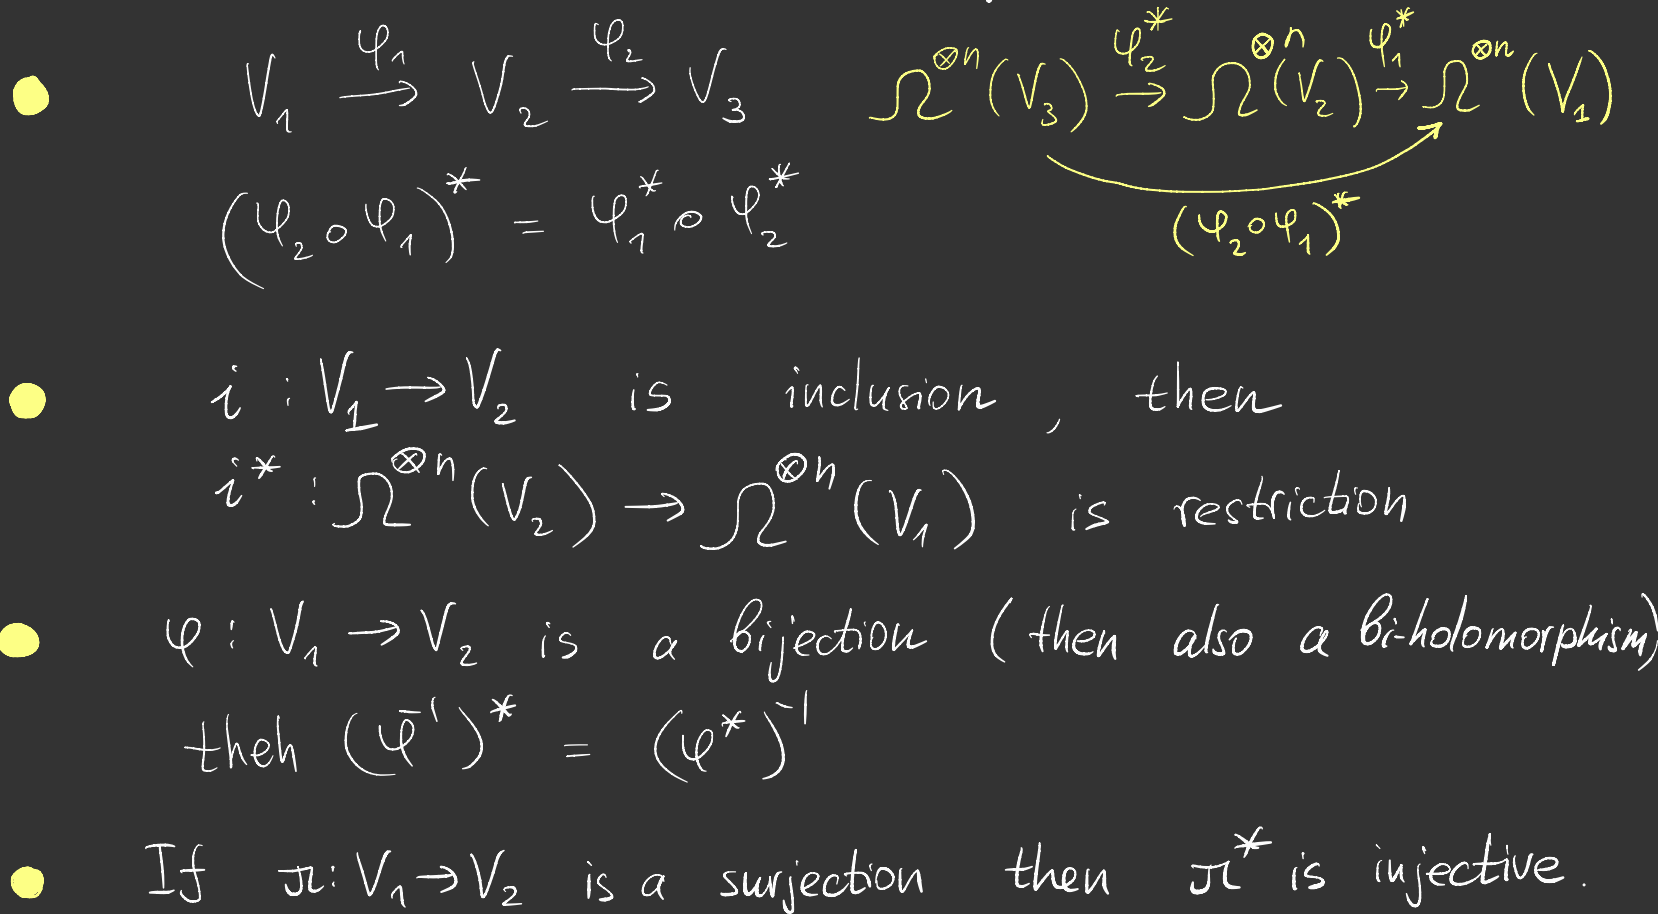 V₁ —φ₁→ V₂ —φ₂→ V₃   Ω^{⊗n}(V₃) —φ₂*→ Ω^{⊗n}(V₂) —φ₁*→ Ω^{⊗n}(V₁)
(φ₂∘φ₁)* = φ₁* ∘ φ₂*   (φ₂∘φ₁)*
i : V₁ → V₂ is inclusion, then
i* : Ω^{⊗n}(V₂) → Ω^{⊗n}(V₁) is restriction
φ : V₁ → V₂ is a bijection (then also a bi-holomorphism)
then (φ⁻¹)* = (φ*)⁻¹
If π: V₁ → V₂ is a surjection then π* is injective.